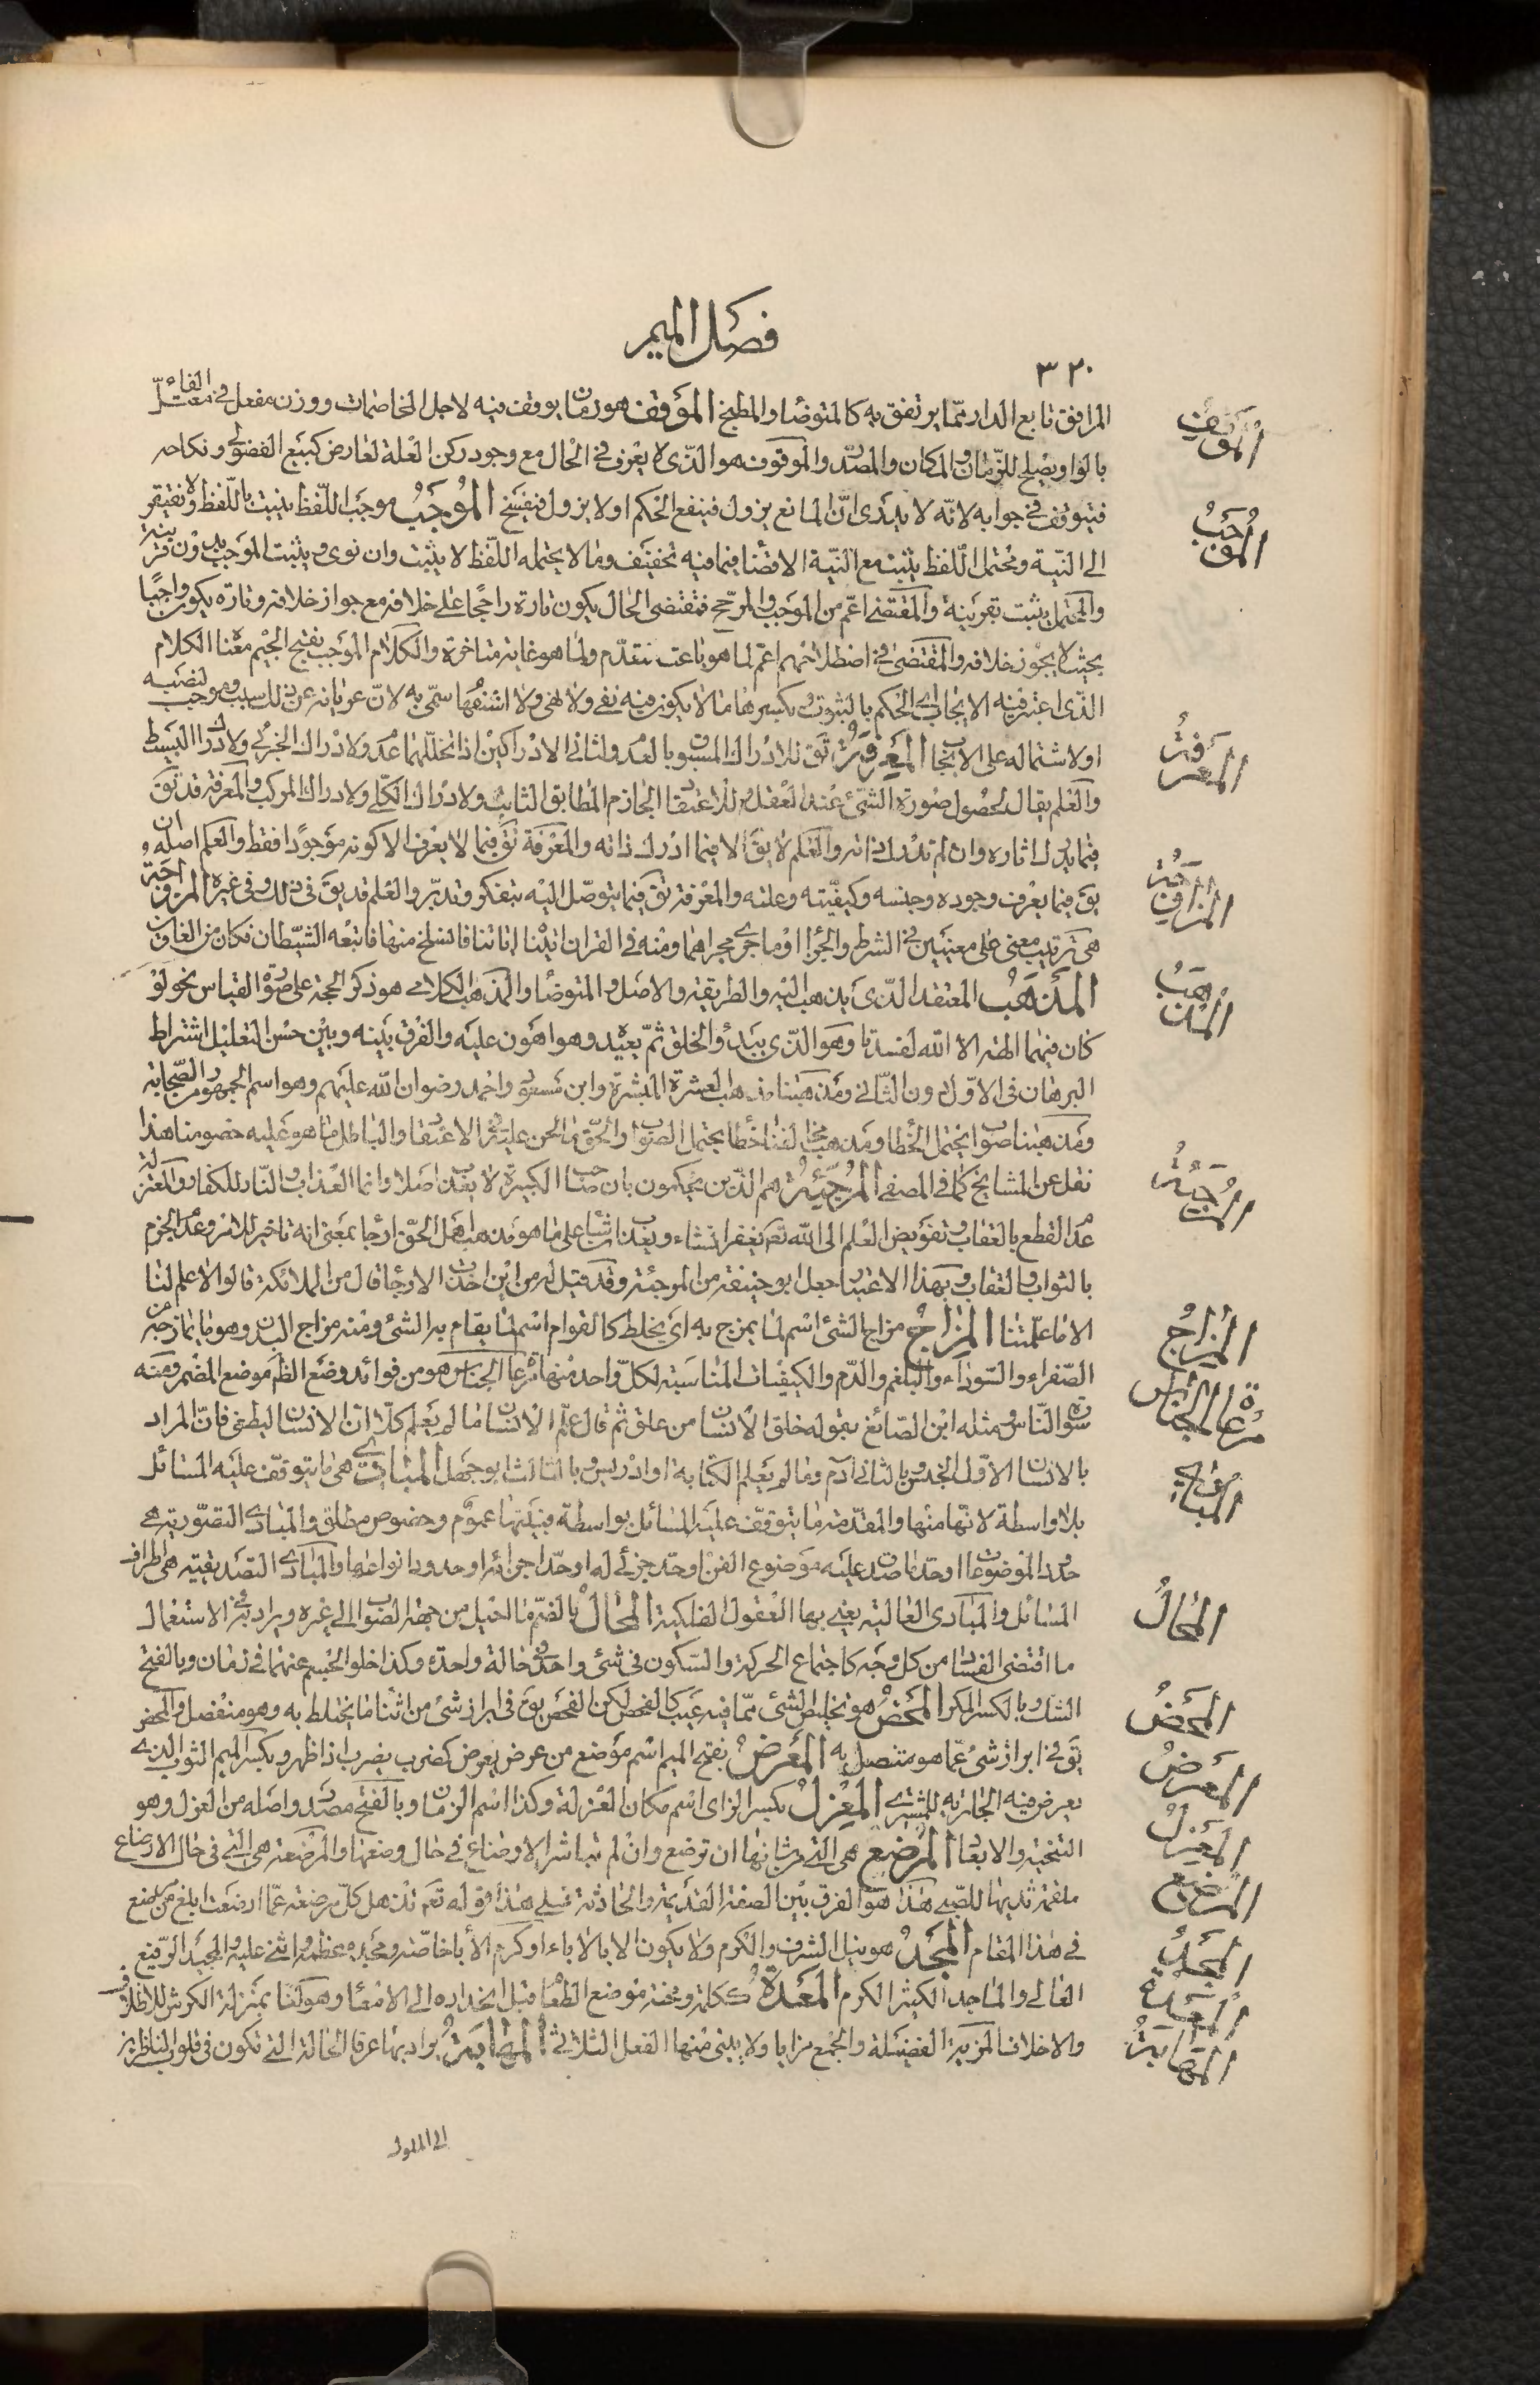 فصل الميم
٣٢٠
المرافق تابع الدار ممّا يرتفق به كالمتوضّأ والمطبخ الموقف هو زمان يوقف فيه لاجل المخاصمات ووزن مفعل فى الفاء معتلّ
بالواو يصلح للزّمان والمكان والمصدر والموقوف هو الّذى لا يعرف فى الحال مع وجود ركن العلة لعارض كبيع الفضولى ونكاحه
فيتوقف فى جوابه لانّه لا يدرى انّ المانع يزول فينفع الحكم او لا يزول فينفسخ الموجب موجب اللّفظ يثبت باللّفظ ولا يفتقر
الى النيّة ومحتمل اللّفظ يثبت مع النيّة الا فيما فيه تخفيف وما لا يحتمله اللّفظ لا يثبت وان نوى ويثبت الموجب بدون قرينة
والمحتمل يثبت بقرينة والمقتضى اعمّ من الموجب والمرجّح فمقتضى الحال يكون تارة راجحا على خلافه مع جواز خلافه وتارة يكون واجبا
بحيث لا يجوز خلافه والمقتضى فى اصطلاحهم اعمّ لما هو باعث متقدّم ولما هو غاية متاخرة والكلام الموجب بفتح الجيم معناه الكلام
الّذى اعتبر فيه الايجاب اى الحكم بالثبوت وبكسرها ما لا يكون فيه نفى ولا نهى ولا استفهام سمّى به لانّ عريانه عن ذلك سبب وموجب لنصبه
او لاشتماله على الايجاب المعرفة تق للادراك المسبوق بالعدم ولثانى الادراكين اذا تخللهما عدم ولادراك الجزئى ولادراك البسيط
والعلم يقال لحصول صورة الشئ عند العقل وللاعتقاد الجازم المطابق الثابت ولادراك الكلّى ولادراك المركب والمعرفة قد تق
فيما يدرك اثاره وان لم يدرك ذاته والعلم لا يق الا فيما ادرك ذاته والمعرفة تق فيما لا يعرف الا كونه موجودا فقط والعلم اصله ان
يق فيما يعرف وجوده وجنسه وكيفيّته وعلته والمعرفة تق فيما يتوصّل اليه بتفكر وتدبّر والعلم قد يق فى ذلك وفى غيره المزاوجة
هى ترتيب معنى على معنيين فى الشرط والجزاء او ما جرى مجراهما ومنه فى القران اتيناه اياتنا فانسلخ منها فاتبعه الشّيطان فكان من الغاوين
المذهب المعتقد الّذى يذهب اليه والطريقة والاصل والمتوضّأ والمذهب الكلامى هو ذكر الحجة على صورة القياس نحو لو
كان فيهما الهة الا الله لفسدتا وهو الّذى يبدؤ الخلق ثمّ يعيده وهو اهون عليه والفرق بينه وبين حسن التعليل اشتراط
البرهان فى الاوّل دون الثّانى ومذهبنا مذهب العشرة المبشرة وابن مسعود واحمد رضوان الله عليهم وهو اسم الجمهور من الصّحابة
ومذهبنا صواب يحتمل الخطا ومذهب مخالفنا خطأ يحتمل الصواب والحقّ ما نحن عليه فى الاعتقاد والباطل ما هو عليه خصومنا هذا
نقل عن المشايخ كما فى المصفى المرجئة هم الّذين يحكمون بان صاحب الكبيرة لا يعذب اصلا وانما العذاب والنّار للكفار والمعتزلة
عدم القطع بالعقاب وتفويض العلم الى الله تع يغفر ان شاء ويعذب ان شاء على ما هو مذهب اهل الحقّ ارجاء بمعنى انه تاخير للامر وعدم الجزم
بالثواب والعقاب وبهذا الاعتبار جعل ابو حنيفة من المرجئة وقد قيل له من اين اخذت الارجاء قال من الملائكة قالوا لا علم لنا
الا ما علّمتنا المزاج مزاج الشئ اسم لما يمزج به اى يخلط كالقوام اسم لما يقام به الشئ ومنه مزاج البدن وهو ما يمازجه من
الصّفراء والسّوداء والبلغم والدّم والكيفيات المناسبة لكلّ واحد منها مراعاة الجناس هو من فوائد وضع الظاهر موضع المضمر ومنه
سورة النّاس ومثله ابن الصّائغ بقوله خلق الانسان من علق ثم قال علّم الانسان ما لم يعلم كلّا ان الانسان ليطغى فانّ المراد
بالانسان الاوّل الجنس وبالثانى آدم وما لم يعلم الكتابة او ادريس وبالثالث ابو جهل المبادى هى ما يتوقّف عليه المسائل
بلا واسطة لانّها منها والمقدّمة ما يتوقّف عليه المسائل بواسطة فبينهما عموم وخصوص مطلق والمبادى التصّوريّة هى
حدود الموضوعات اوحدّ ما صدق عليه موضوع الفنّ اوحدّ جزئى له اوحدّ اجزائه او حدود انواعها والمبادى التصديقية هى اطراف
المسائل والمبادى العالية يعنى بها العقول الفلكية المحال بالضمّ ما احيل من جهة الصواب الى غيره ويراد به فى الاستعمال
ما اقتضى الفساد من كل وجه كاجتماع الحركة والسّكون فى شئ واحد فى حالة واحدة وكذا خلوا الجسم عنهما فى زمان وبالفتح
الشك وبالكسر المكر المحض هو تخليص الشئ ممّا فيه عيب كالفحص لكن الفحص يق فى ابراز شئ من اثناء ما يختلط به وهو منفصل والمحض
يق فى ابراز شئ عمّا هو متصل به المعرض بفتح الميم اسم موضع من عرض يعرض كضرب يضرب اذا ظهر وبكسر الميم الثوب الذى
يعرض فيه الجارية للمشترى المعزل بكسر الزاى اسم مكان العزلة وكذا اسم الزمان وبالفتح مصدر واصله من العزل وهو
التنحية والابعاد المرضع هى التى من شانها ان ترضع وان لم تباشر الارضاع فى حال وصفها والمرضعة هى التى فى حال الارضاع
ملقمة ثديها للصّبى هذا هو الفرق بين الصفة القديمة والحادثة فعلى هذا قوله تعالى تذهل كلّ مرضعة عمّا ارضعت ابلغ من مرضع
فى هذا المقام المجد هو نيل الشرف والكرم ولا يكون الا بالاباء او كرم الأبا خاصّة ومجده عظمه واثنى عليه والمجيد الرّفيع
العالى والماجد الكثير الكرم المعدة ككلمة ومحنة موضع الطعام قبل انحداره الى الامعاء وهو لنا بمنزلة الكرش للاظلاف
والاخلاف المزية الفضيلة والجمع مزايا ولا يبنى منها الفعل الثلاثى المهابة يراد بها عرفا الحالة التى تكون فى قلوب الناظرين
الى الملوك
الموقف
الموجب
المعرفة
المزاوجة
المذهب
المرجئة
المزاج
مراعاة الجناس
المبادى
المحال
المحض
المعرض
المعزل
المرضع
المجد
المعدة
المهابة